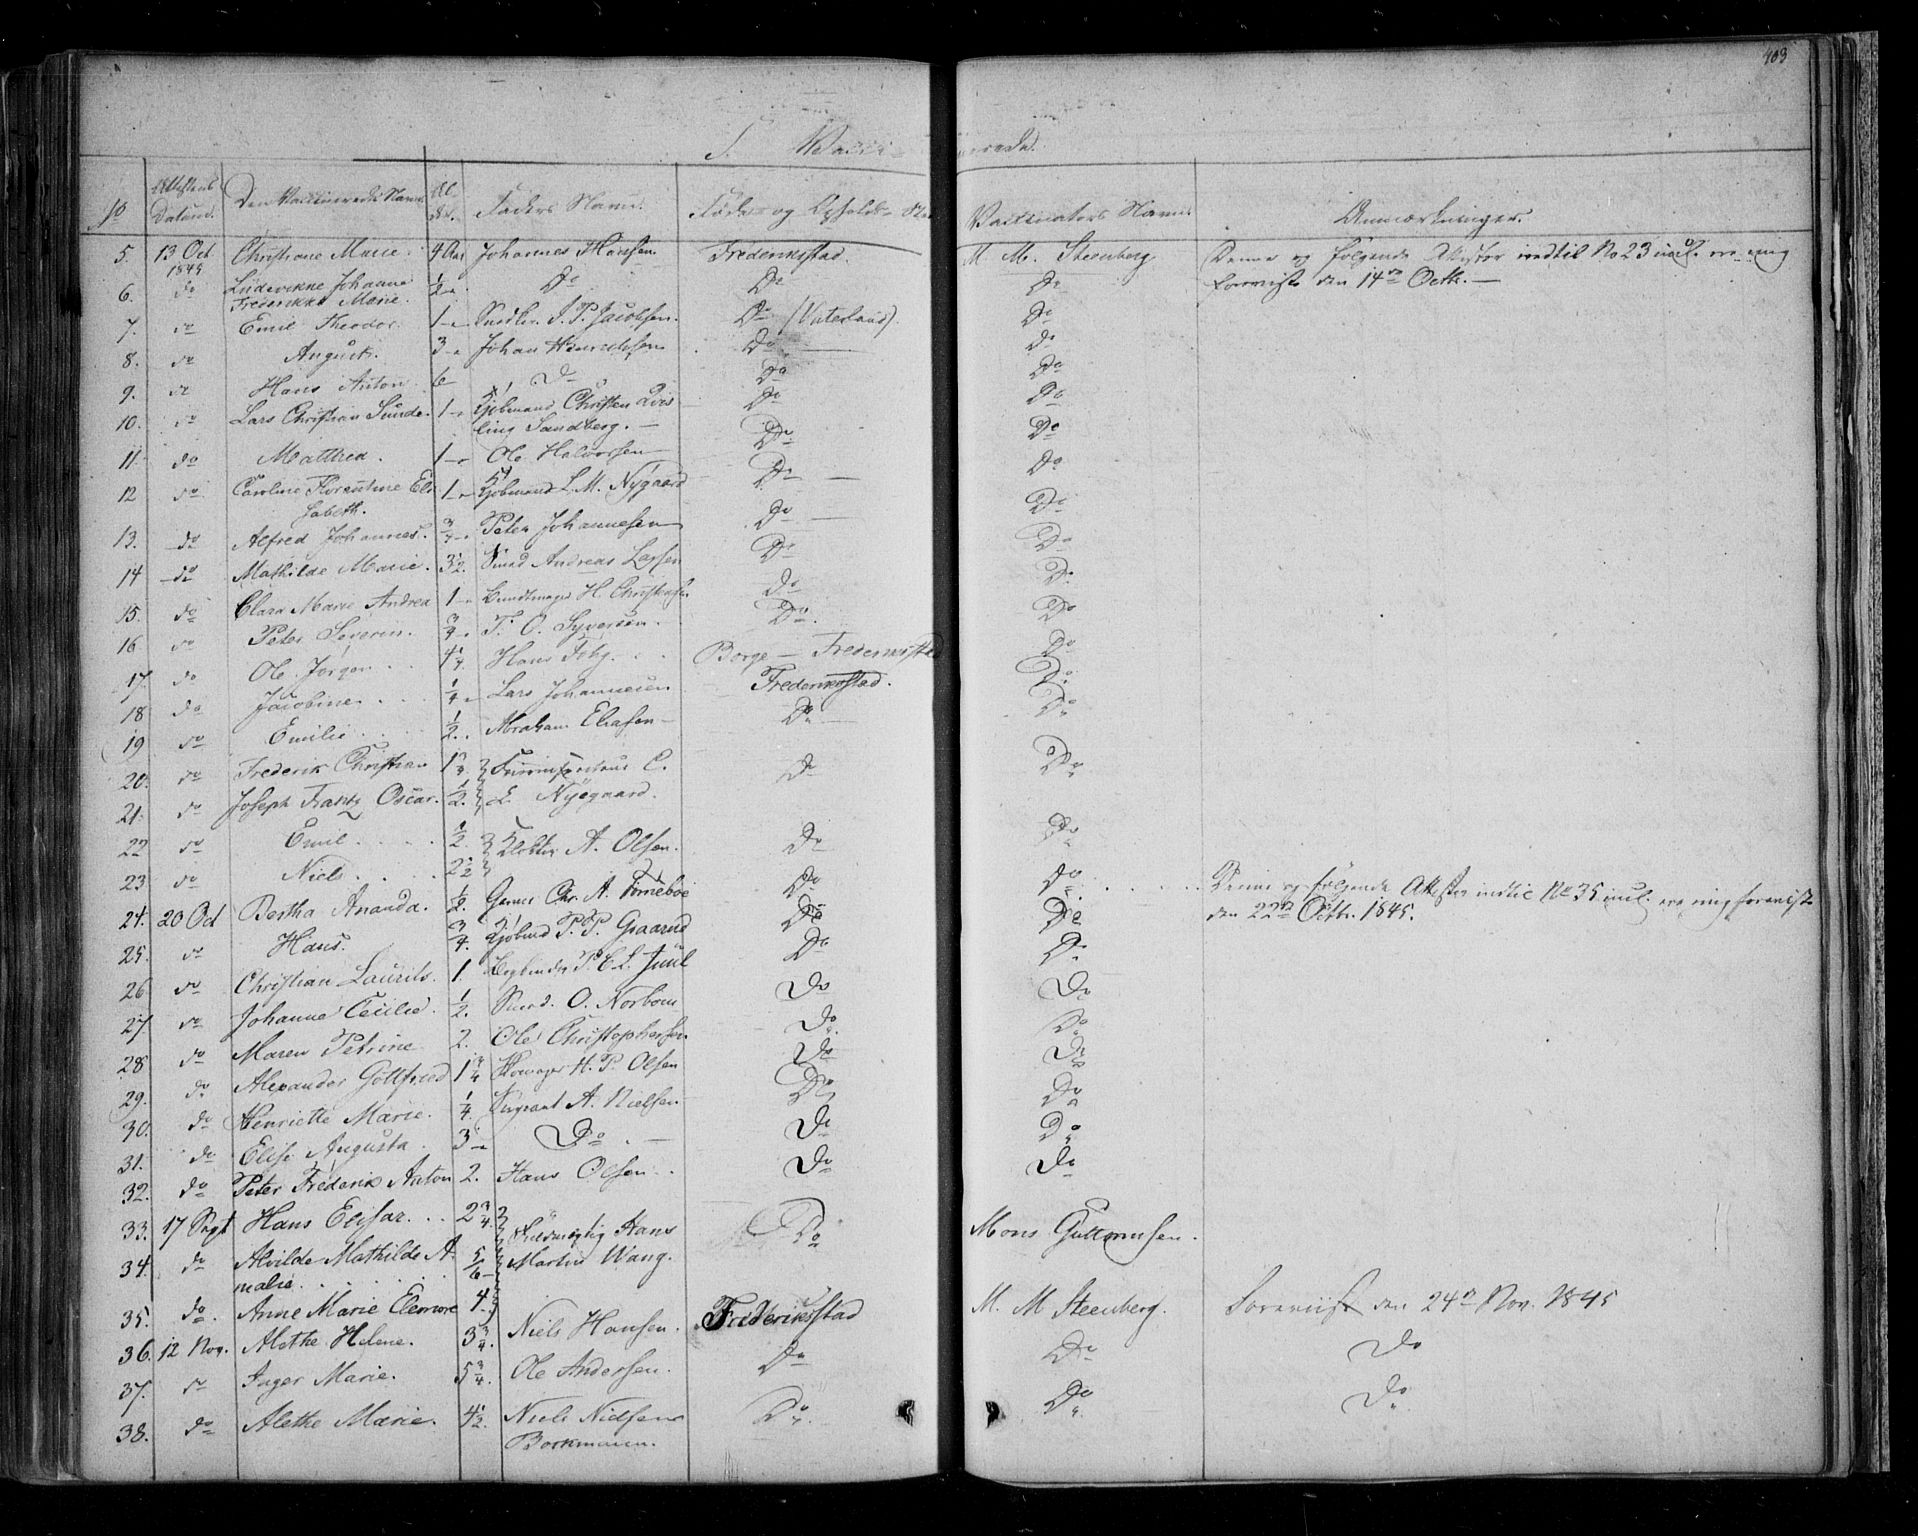 403
J. Vacci- nerede.
No Attestens Datum. Den Vaccineredes Navn Al der. Faders Navn. Føde- og Opholds- Sted Vaccinators Navn. Anmærkninger.
5. 13 Oct 1845 Christiane Marie. 4 Aar Johannes Hansen Frederiksstad. M. M. Steenberg Denne og følgende Attester indtil No 23 incl. ere mig
foreviste den 14de Octb. —
6. do Ludevikke Johanne Frederikke Marie. 1/2 Do Do Do
7. do Emil Theodor. 1 Snedker J. P. Jacobsen. Do (Vaterland). Do
8. do August. 3 Johan Henrichsen Do do
9. do Hans Anton 6 Do Do Do
10. do Lars Christian Sunde. 1 Kjøbmand Christen Qvis
ling Sandberg. — Do Do
11. do Matthea. 1 Ole Halvorsen Do Do
12 do Caroline Florentine Eli
sabeth. 1 Kjøbmand L. M. Nygaard Do Do
13. do Alfred Johannes. 3/4 Peter Johannesen Do Do
14 do Mathilde Marie. 3 1/2. Smed Andreas Larsen Do Do
15. do Clara Marie Andrea 1 Bundtmager H. Christensen Do Do
16 do Peter Severin. 3/4 T. O. Syversen. Do. Do
17. do Ole Jørgen 4 1/4 Hans Foby Borge — Frederiksstad Do
18 do Jacobine 1/4 Lars Johannesen Frederiksstad. Do
19 do Emilie 1/2. Abraham Eliasen — Do Do
20. do Frederik Christian 1 3/4 C.
21. do Joseph Frantz Oscar. 1/2. L. Nyegaard. Do Do
22 do Emil 1/2. A. Olsen. Do Do
23 do Niels 2 1/2
24. 20 Oct Bertha Ananda. 1/2. Garver Chr. A. Torneboe Do Do Denne og følgende Attester indtil No 35 incl. ere mig forevist
den 22de Octbr. 1845.
25. do Hans. 3/4. Kjøbmd P. P. Gaarud Do Do
26 do Christian Laurits. 1. Bogbinder P. C. L. Juul Do Do
27. do Johanne Cecilie. 1/2. Smed. O. Norbom Do Do
28 do Maren Petrine 2. Ole Christophersen Do. Do
29. do Alexander Gottfried 1 3/4 Skomager H. P. Olsen Do Do
30. do Henriette Marie. 1/4. Sergeant A. Nielsen Do Do
31. do Elise Augusta. 3 Do. Do Do
32. do Peter Frederik Anton 2. Hans Olsen Do Do
33. 17 Sept Hans Elisar. 2 3/4. Hans
34. do Alvilde Mathilde A
malie. 5/6 Martin Wang. Do Mons Guttormsen.
35. do. Anne Marie Elenore 4.
36. 12 Nov. Alethe Helene. 3 3/4. Niels Hansen. Frederiksstad M. M Steenberg. Foreviist den 24de Nov. 1845
37. do Inger Marie. 5 3/4. Ole Andersen. Do Do Do
38. do Alethe Marie. 4 1/2. Niels Nielsen
Borkmann. Do Do Do